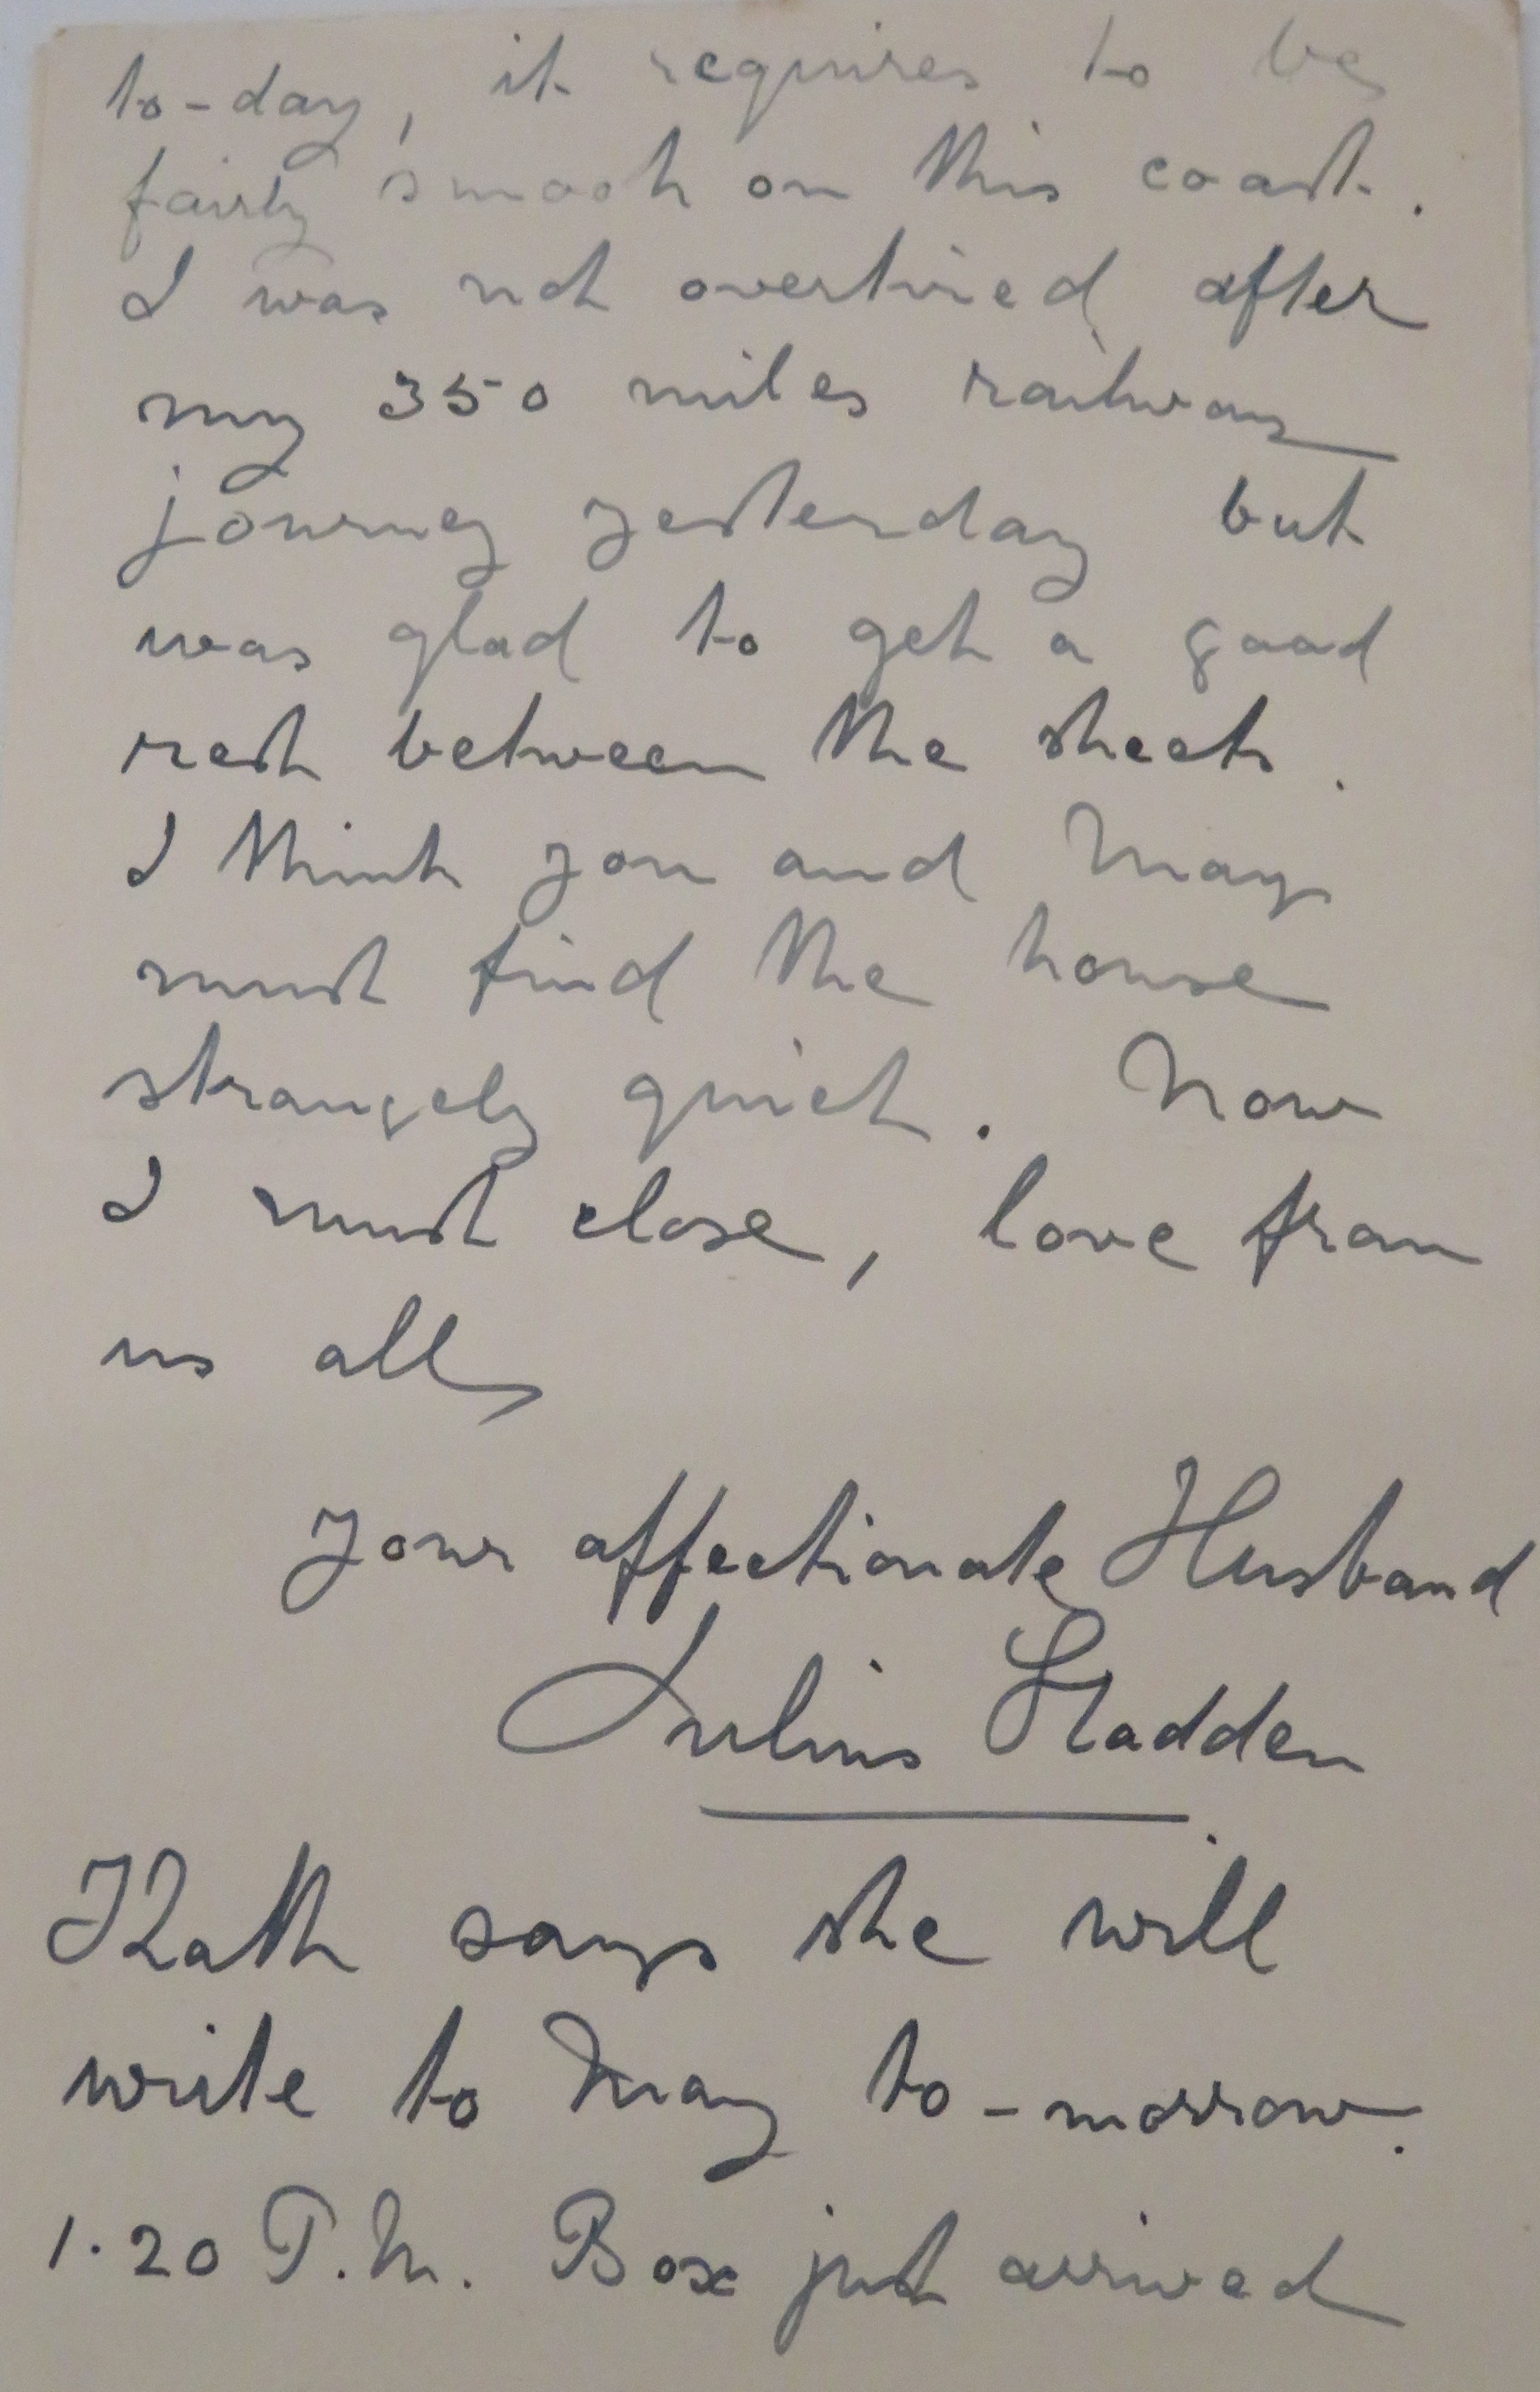 to-day, it requires to be
fairly smooth on this coast.
I was not overtired after
my 350 miles railway
journey yesterday but
was glad to get a good
rest between the sheets.
I think you and May
must find the house
strangely quiet. Now
I must close, love from
us all,
Your affectionate Husband
Julius Hadden
Kath says she will
write to May to-morrow.
1.20 P.M. Box just arrived